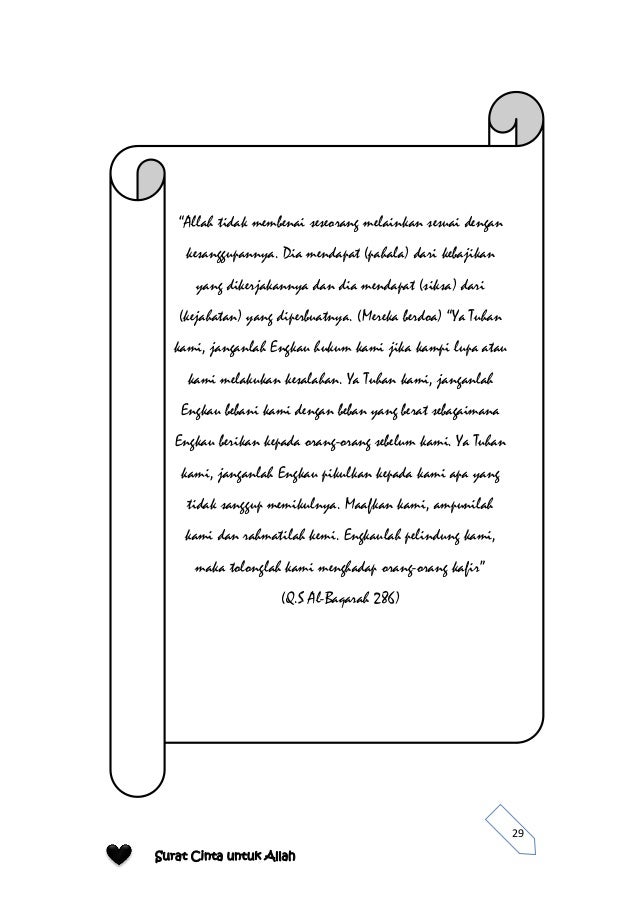 “Allah tidak membenai seseorang melainkan sesuai dengan
kesanggupannya. Dia mendapat (pahala) dari kebajikan
yang dikerjakannya dan dia mendapat (siksa) dari
(kejahatan) yang diperbuatnya. (Mereka berdoa) “Ya Tuhan
kami, janganlah Engkau hukum kami jika kampi lupa atau
kami melakukan kesalahan. Ya Tuhan kami, janganlah
Engkau bebani kami dengan beban yang berat sebagaimana
Engkau berikan kepada orang-orang sebelum kami. Ya Tuhan
kami, janganlah Engkau pikulkan kepada kami apa yang
tidak sanggup memikulnya. Maafkan kami, ampunilah
kami dan rahmatilah kemi. Engkaulah pelindung kami,
maka tolonglah kami menghadap orang-orang kafir”
(Q.S Al-Baqarah 286)
29
Surat Cinta untuk Allah